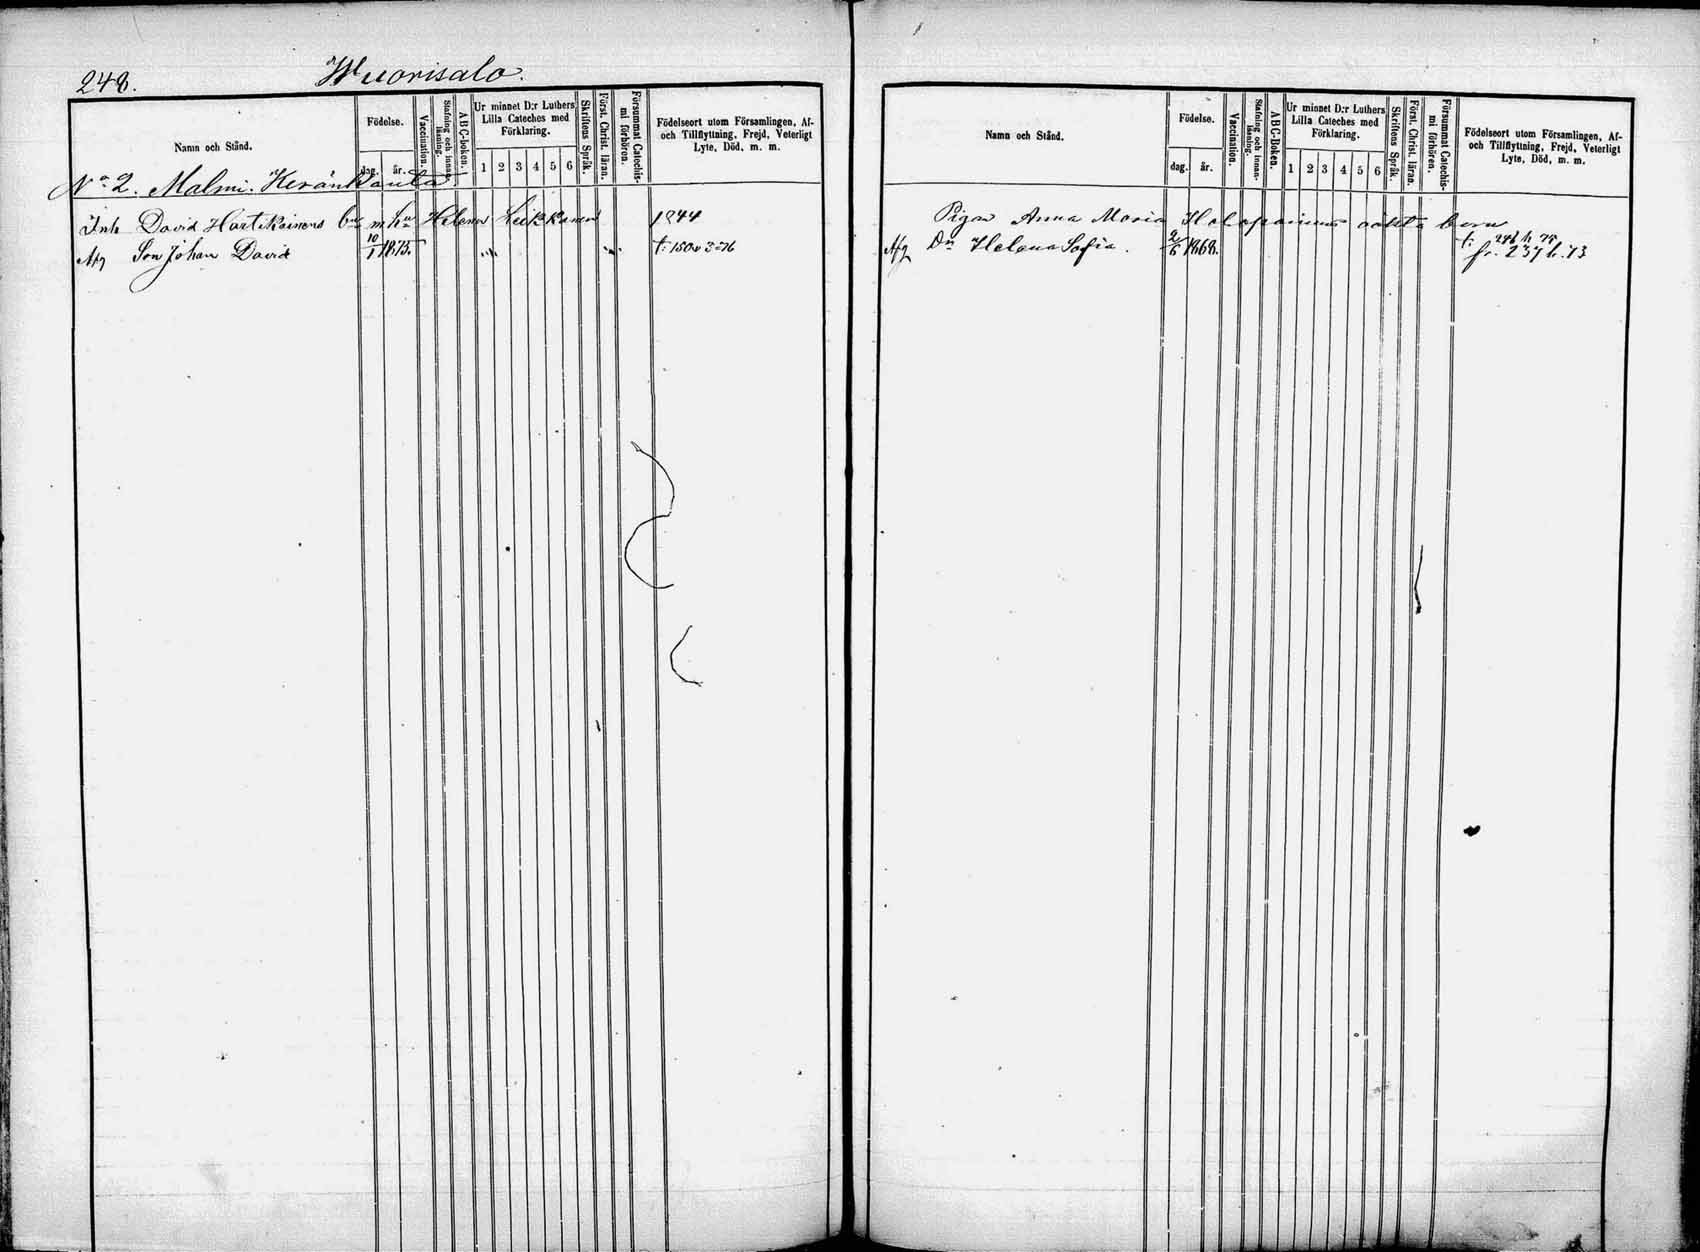 248.
Wuorisalo.
Namn och Stånd.
Födelse.
dag.
år.
Vaccination.
Stafning och innanläsning.
ABC-boken.
Ur minnet D:r Luthers Lilla Cateches med Förklaring.
1 2 3 4 5 6
Skriftens Språk.
Först. Christ. läran.
Försummat Catechismi förhören.
Födelseort utom Församlingen, Af- och Tillflyttning, Frejd, Veterligt Lyte, Död, m. m.
No 2. Malmi. Keränkauta.
Inh David Hartikainens m hu Helena 1844
Son Johan David 10/1 1875.
Namn och Stånd.
Födelse.
dag.
år.
Vaccination.
Stafning och innanläsning.
ABC-Boken.
Ur minnet D:r Luthers Lilla Cateches med Förklaring.
1 2 3 4 5 6
Skriftens Språk.
Först. Christ. läran.
Försummat Catechismi förhören.
Födelseort utom Församlingen, Af- och Tillflyttning, Frejd, Veterligt Lyte, Död, m. m.
Pigan Anna Maria Holopainens oäkta barn
Dr Helena Sofia. 1868. fr. 237 h. 73